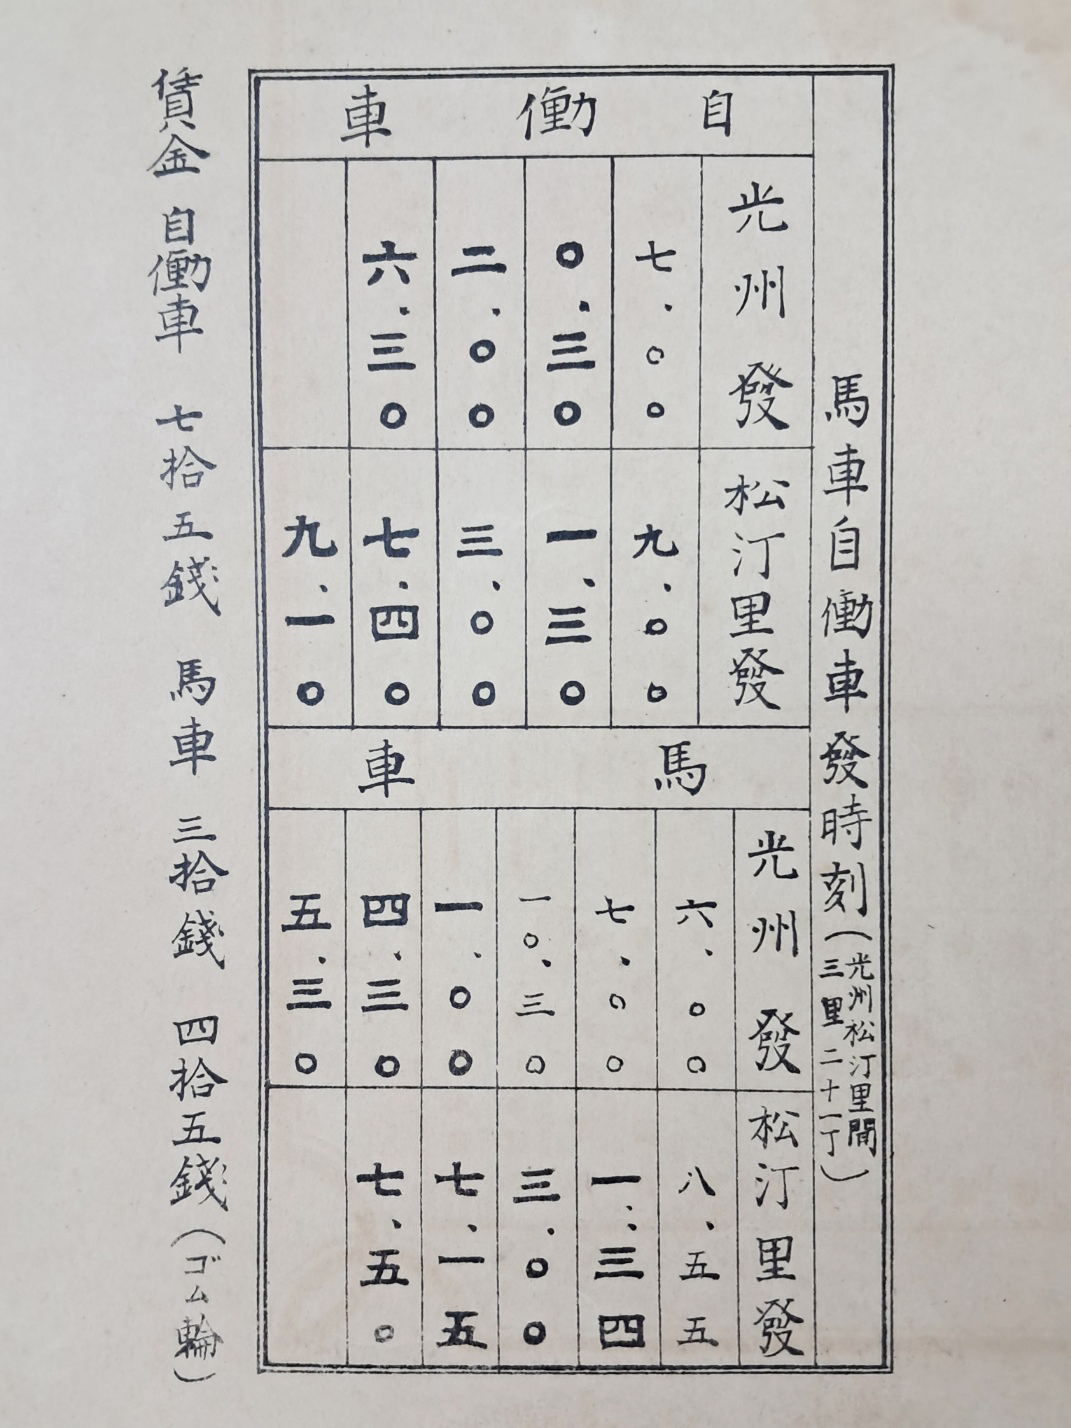 馬車自働車發時刻(光州松汀里間三里二十一丁)
自働車
光州發
七.〇〇
〇.三〇
二.〇〇
六.三〇
松汀里發
九、〇〇
一、三〇
三、〇〇
七、四〇
九、一〇
馬車
光州發
六、〇〇
七、〇〇
一〇、三〇
一、〇〇
四、三〇
五、三〇
松汀里發
八、五五
一、三四
三、〇〇
七、一五
七、五〇
賃金 自働車 七拾五錢 馬車 三拾錢 四拾五錢(ゴム輪)